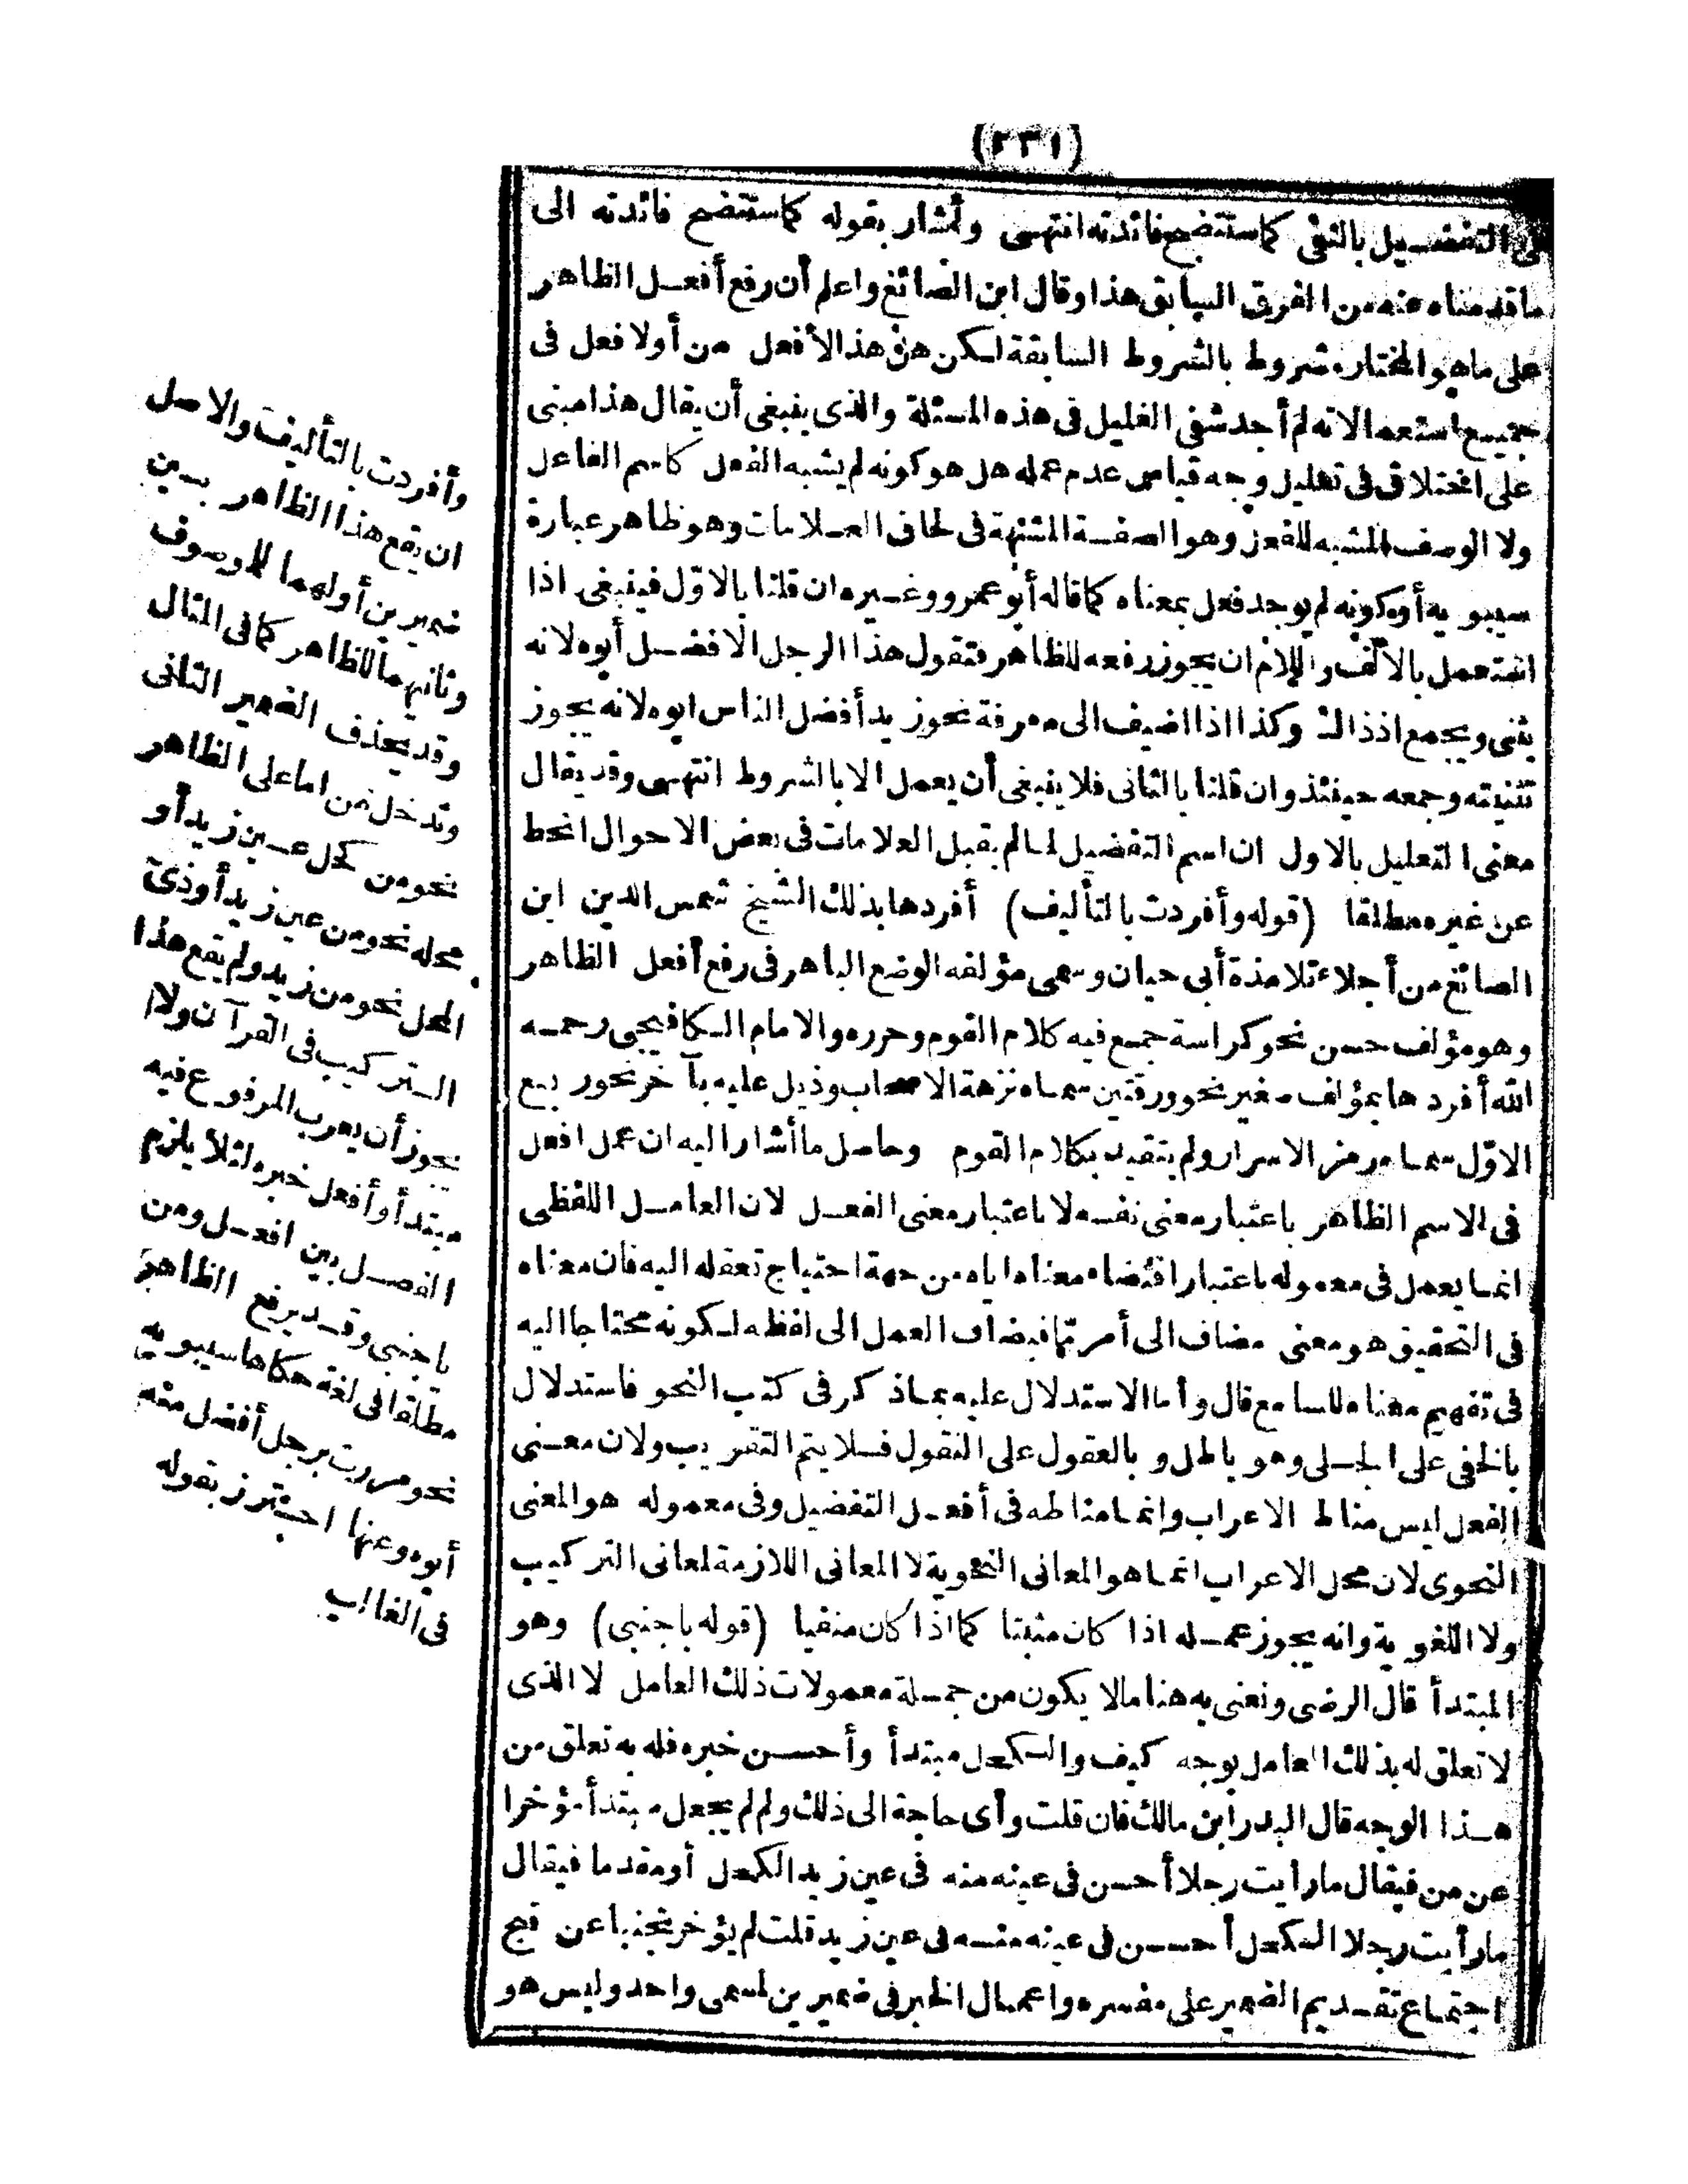 (٢٣١)
فى التفضيل بالنفى كماستتضح فائدته انتهى وأشار بقوله كماستتضح فائدته الى
ماقدمناه عنه من الفرق السابق هذا وقال ابن الصائغ واعلم أن رفع أفعل الظاهر
على ماهو المختار مشروط بالشروط السابقة لكن هل هذا الأفعل من أولا فعل فى
جميع استعمالاته لم أجد شفى الغليل فى هذه المسئلة والذى ينبغى أن يقال هذا مبنى
على اختلاف فى تعليل وجه قياس عدم عمله هل هو كونه لم يشبه الفعل كاسم الفاعل
ولا الوصف المشبه للفعل وهو الصفة المشبهة فى لحاق العلامات وهو ظاهر عبارة
سيبويه أو كونه لم يوجد فعل بمعناه كما قاله أبو عمرو وغيره ان قلنا بالاول فينبغى اذا
استعمل بالالف واللام ان يجوز رفعه للظاهر فتقول هذا الرجل الافضل أبوه لانه
يثنى ويجمع اذ ذاك وكذا اذا اضيف الى معرفة نحو زيد أفضل الناس ابوه لانه يجوز
تثنيته وجمعه حينئذ وان قلنا بالثانى فلا ينبغى أن يعمل الا بالشروط انتهى وقد يقال
معنى التعليل بالاول ان اسم التفضيل لما لم يقبل العلامات فى بعض الاحوال انحط
عن غيره مطلقا (قوله وأفردت بالتأليف) أفردها بذلك الشيخ شمس الدين ابن
الصائغ من أجلاء تلامذة أبى حيان وسمى مؤلفه الوضع الباهر فى رفع أفعل الظاهر
وهو مؤلف حسن نحو كراسة جمع فيه كلام القوم وحرره والامام الكافيجى رحمه
الله أفردها بمؤلف صغير نحو ورقتين سماه نزهة الاصحاب وذيل عليه بآخر نحو ربع
الاول سماه رمز الاسرار ولم يتقيد بكلام القوم وحاصل ما أشار اليه ان عمل افعل
فى الاسم الظاهر باعتبار معنى نفسه لا باعتبار معنى الفعل لان العامل اللفظى
انما يعمل فى معموله باعتبار اقتضاء معناه اياه من جهة احتياج تعقله اليه فان معناه
فى التحقيق هو معنى مضاف الى أمر ثما فيضاف العمل الى لفظه لكونه محتاجا اليه
فى تفهيم معناه للسامع قال وأما الاستدلال عليه بما ذكر فى كتب النحو فاستدلال
بالخفى على الجلى وهو باطل و بالعقول على النقول فلا يتم التقريب ولان معنى
الفعل ليس مناط الاعراب وانما مناطه فى أفعل التفضيل وفى معموله هو المعنى
النحوى لان محل الاعراب انما هو المعانى النحوية لا المعانى اللازمة لمعانى التركيب
ولا اللغوية وانه يجوز عمله اذا كان مثبتا كما اذا كان منفيا (قوله باجنبى) وهو
المبتدأ قال الرضى ونعنى به هنا مالا يكون من جملة معمولات ذلك العامل لا الذى
لا تعلق له بذلك العامل بوجه كيف والكحل مبتدأ وأحسن خبره فله به تعلق من
هذا الوجه قال البدر ابن مالك فان قلت وأى حاجة الى ذلك ولم لم يجعل مبتدأ مؤخرا
عن من فيقال مارأيت رجلا أحسن فى عينه منه فى عين زيد الكحل أو مقدما فيقال
مارأيت رجلا الكحل أحسن فى عينه منه فى عين زيد قلت لم يؤخر تجنبا عن قبح
اجتماع تقديم الضمير على مفسره واعمال الخبر فى ضميرين لمسمى واحد وليس هو
وأفردت بالتأليف والاصل
ان يقع هذا الظاهر بين
ضميرين أولهما للموصوف
وثانيهما للظاهر كما فى المثال
وقد يحذف الضمير الثانى
وتدخل من اما على الظاهر
نحو من كحل عين زيد أو
محله نحو من عين زيد أو ذى
المحل نحو من زيد ولم يقع هذا
التركيب فى القرآن ولا
يجوز أن يعرب المرفوع فيه
مبتدأ وأفعل خبره لئلا يلزم
الفصل بين افعل ومن
باجنبى وقد يرفع الظاهر
مطلقا فى لغة حكاها سيبويه
نحو مررت برجل أفضل منه
أبوه وعنها احترز بقوله
فى الغالب